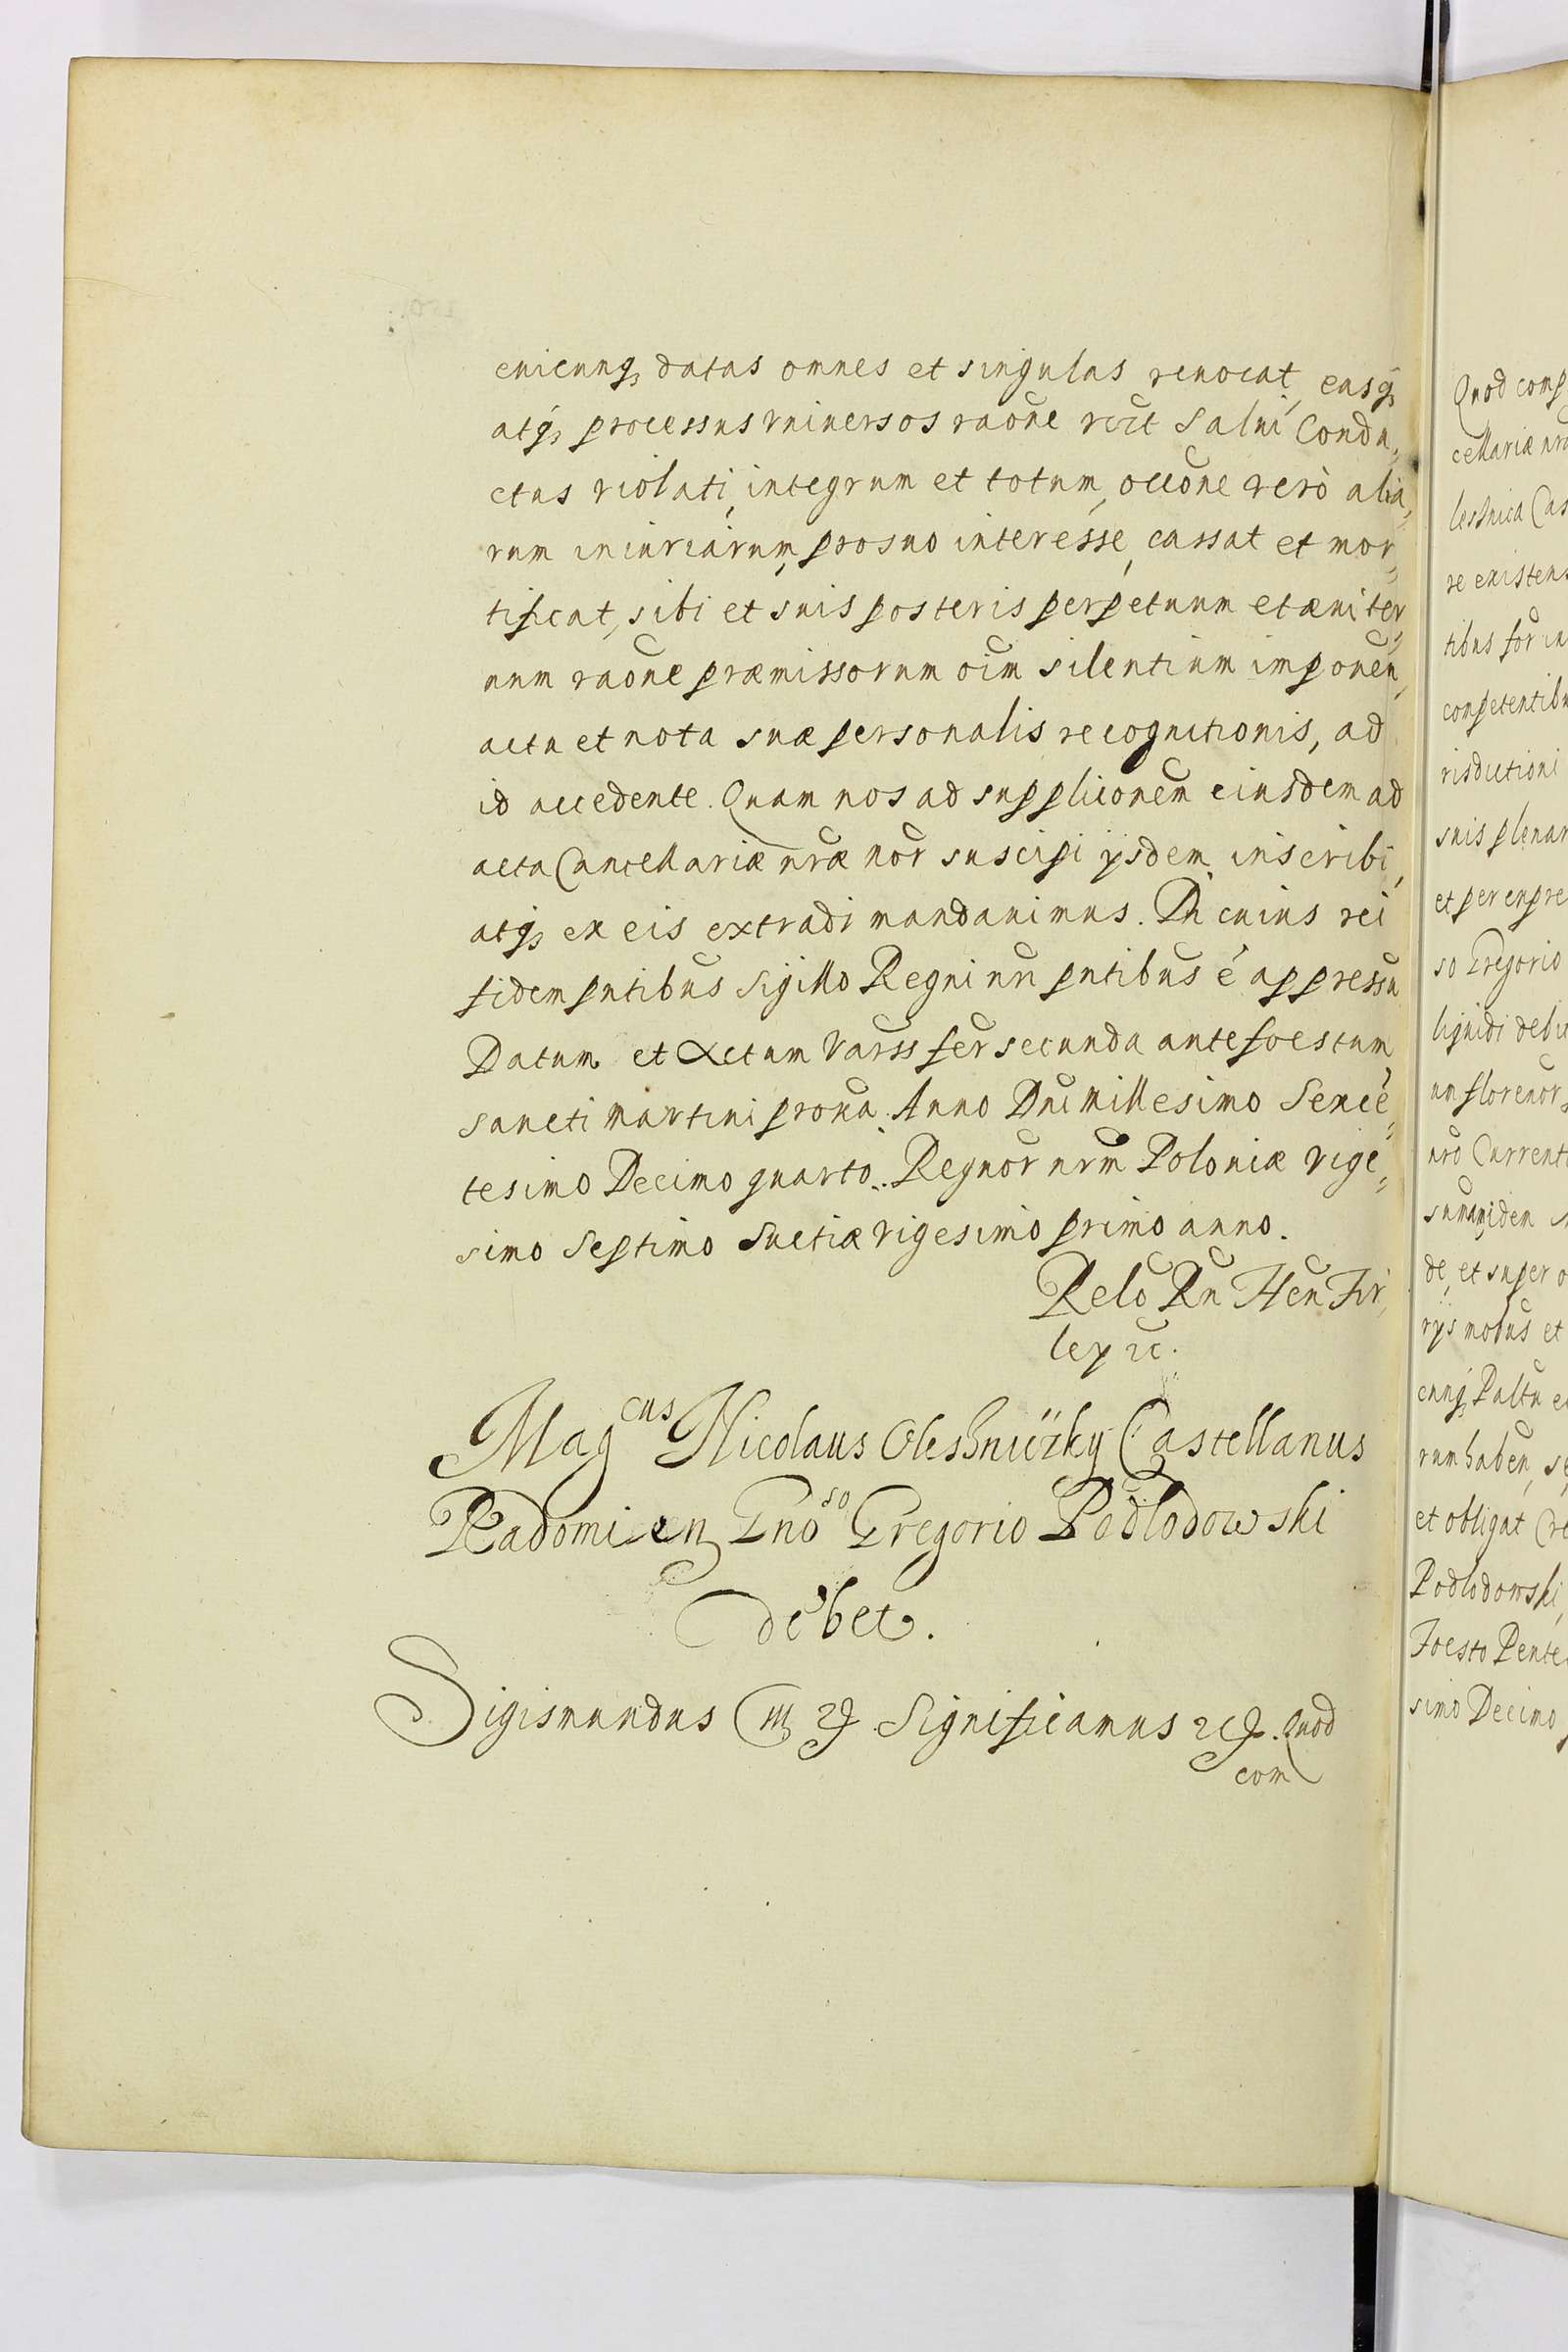 cuicunq, datas omnes et singulas reuocat, easq,
atq, processus vniuersos raõne rĩct Salui Condu,
ctus violati, integrum et totum, occõne verò alia,
rum iniuriarum, pro suo interesse, cassat et mor
tificat, sibi et suis posteris perpetuum et æuiter
num raõne præmissorum oim̃ silentium imponen̄,
actu et nota suæ personalis recognitionis, ad
id accedente. Quam nos ad supplicõnem eiusdem ad
acta Cancellariæ nr̃æ nõr suscipi ijsdem inscribi,
atq, ex eis extradi mandauimus. In cuius rei
fidem pntibus Sigillo Regni nri pntibus é appressũ
Datum et Actum Varss fer̃ secunda ante foestum
sancti Martini prox̃a. Anno Dnĩ Millesimo Sexcẽ
tesimo Decimo quarto. Regnor̃ nrm̃ Poloniæ vige
simo Septimo Suetiæ vigesimo primo anno.
Relõ Rñ Hen̄ Fir,
ley zc.
Mag cus Nicolaus Oleshniczky Castellanus
Radomien Gnõ so Gregorio Podlodowski
debet.
Sigismundus III zc Significamus zc. Quod
com
Quod comp
cellariæ nrã
leshnica Cas
re existens
tibus for̃ in
competentibu
risdictioni
suis plenar
et per expre
so Gregorio
liquidi debit
un florenor̃
nrõ Currenti
sum̃am, idem
de, et super o
rijs motus et
cunq, Paltu e
rum haben, se
et obligat Cre
Podlodowski,
Foesto Pente
simo Decimo